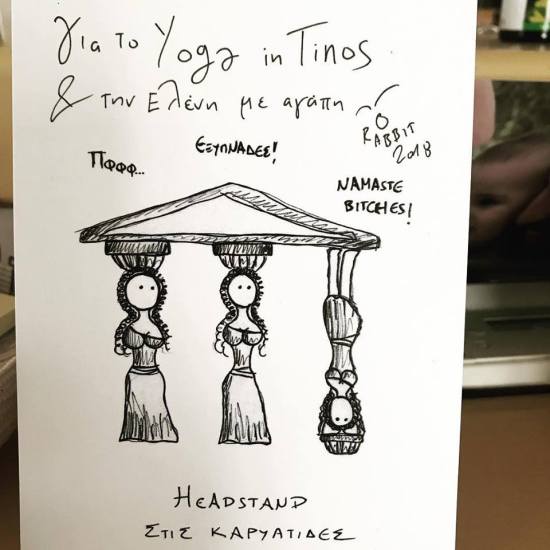 Για το Yoga in Tinos
& την Ελένη με αγάπη
O RABBIT
2018
Πφφφ...
ΕΞΥΠΝΑΔΕΣ!
NAMASTE
BITCHES!
HEADSTAND
ΣΤΙΣ ΚΑΡΥΑΤΙΔΕΣ